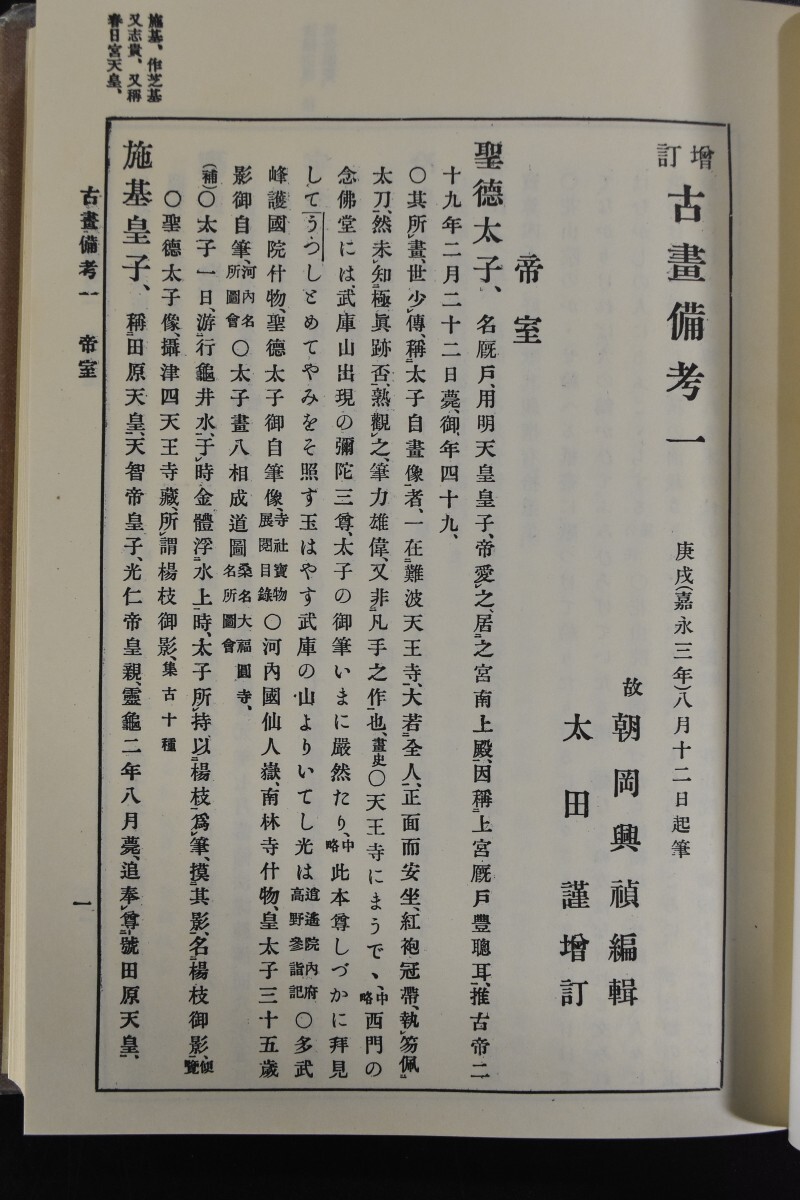 施基、作芝基
又志貴、又稱
春日宮天皇、
增訂 古畫備考一 庚戌(嘉永三年)八月十二日起筆
故 朝岡興禎編輯
太田謹增訂
帝室
聖德太子、名厩戶、用明天皇皇子、帝愛レ之、居二之宮南上殿一、因稱二上宮厩戶豐聰耳一、推古帝二
十九年二月二十二日薨、御年四十九、
〇其所レ畫、世少レ傳、稱二太子自畫像一者、一在二難波天王寺一、大若二全人一、正面而安坐、紅袍冠帶、執レ笏佩二
太刀一、然未レ知二極眞跡否一、熟觀レ之、筆力雄偉、又非二凡手之作一也、畫史〇天王寺にまうで、中略西門の
念佛堂には、武庫山出現の彌陀三尊、太子の御筆いまに嚴然たり、中略此本尊しづかに拜見
してうつしとめてやみをそ照す玉はやす武庫の山よりいてし光は逍遙院內府高野參詣記〇多武
峰護國院什物、聖德太子御自筆像、寺社寶物展閱目錄〇河內國仙人嶽、南林寺什物、皇太子三十五歲
影御自筆、河內名所圖會〇太子畫八相成道圖桑名大福圓寺、名所圖會
(補)〇太子一日、游二行龜井水一、于レ時金體浮二水上一、時、太子所レ持、以二楊枝一爲レ筆、摸二其影一、名二楊枝御影一、便覽
〇聖德太子像、攝津四天王寺藏、所レ謂楊枝御影、集古十種
施基皇子、稱二田原天皇一、天智帝皇子、光仁帝皇親、靈龜二年八月薨、追奉レ尊二號田原天皇一、
古畫備考一 帝室 一